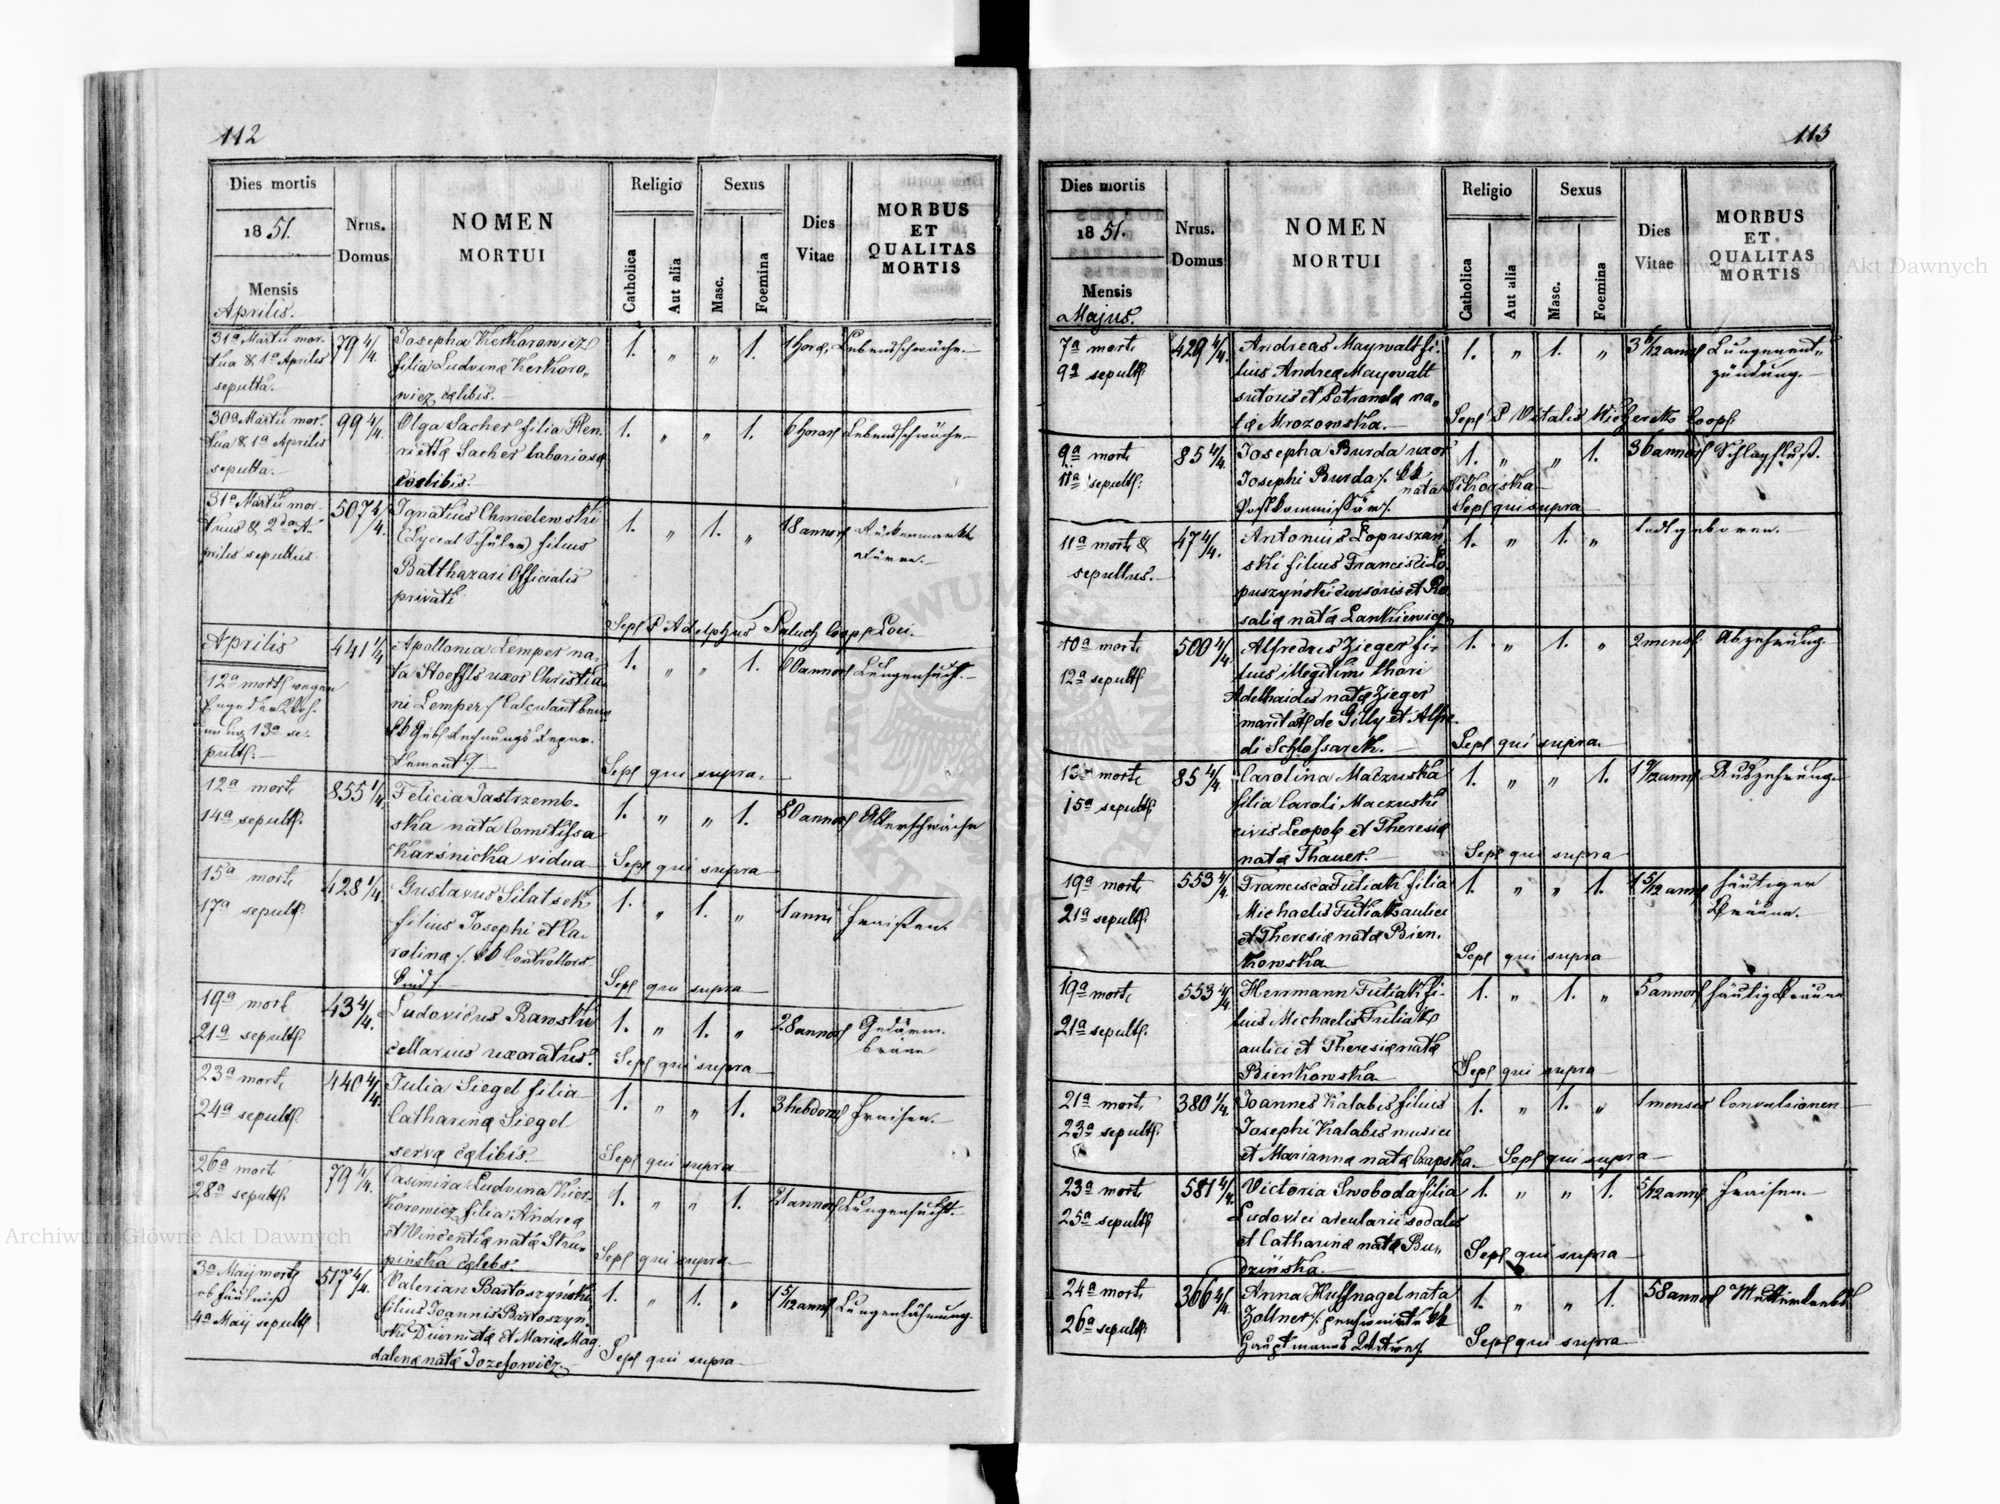 112
Dies mortis
1851.
Mensis
Aprilis.
Nrus.
Domus
NOMEN
MORTUI
Religio
Catholica
Aut alia
Sexus
Masc.
Foemina
Dies
Vitae
MORBUS
ET
QUALITAS
MORTIS
31a Martii mor-
tua & 1a Aprilis
sepulta.
79 4/4.
Josepha Kerkorowicz
filia Ludvina Kerkoro-
wicz cœlibis.
1. " " 1.
1 hora.
Lebensschwäche.
30a Martii mor-
tua & 1a Aprilis
sepulta.
99 4/4.
Olga Sacher filia Hen-
riettæ Sacher laboriosæ
cœlibis.
1. " " 1.
6 horas
Lebensschwäche
31a Martii mor-
tuus & 2da A-
prilis sepultus
507 4/4.
Ignatius Chmielewski
(Lyceal Schüler) filius
Balthazari Officialis
privati
1. " 1. "
18 annor
Rückenmarks
dürre.
Sepl P Adolphus Paluch Coop Loci.
Aprilis
12a mort wegen
13a se-
pult.
441 1/4
Apollonia Lemper na-
ta Stoeffls uxor Christia-
ni Lemper / Calculant beim
Rechnungs Depar-
tement /.
1. " " 1.
60 annor
Lungensucht.
Sepl qui supra.
12a mort
14a sepult.
855 1/4
Felicia Jastrzemb-
ska nata Comitissa
Karśnicka vidua
1. " " 1.
80 annor
Altersschwäche
Sepl qui supra
15a mort
17a sepult.
428 1/4.
Gustavus Silatsek
filius Josephi et Ca-
rolinæ /. kk Controllors
Kind /.
1. " 1. "
1 anni
Fraißen.
Sepl qui supra
19a mort
21a sepult.
43 4/4.
Ludovicus Rawski
cellarius uxoratus.
1. " 1. "
28 annor
Gedärm-
bräun
Sepl qui supra
23a mort
24a sepult.
440 4/4.
Julia Siegel filia
Catharinæ Siegel
servæ cœlibis.
1. " " 1.
3 hebdom
Fraisen.
Sepl qui supra
26a mort
28a sepult.
79 4/4.
Casimira Ludvina Kier-
korowicz filia Andreæ
et Vincentiæ natæ Stru-
pinska cœlebs.
1. " " 1.
21 annor
Lungensucht.
Sepl qui supra
3a Maij mort
ob Fäulniß
4a Maij sepult
517 4/4.
Valerian Bartoszyński
filius Joannis Bartoszyn-
ski Diurnistæ et Mariæ Mag-
dalenæ natæ Jozefowicz.
1. " 1. "
1 5/12 anni
Lungenlähmung.
Sepl qui supra
113
Dies mortis
1851.
Mensis
Majus.
Nrus.
Domus
NOMEN
MORTUI
Religio
Catholica
Aut alia
Sexus
Masc.
Foemina
Dies
Vitae
MORBUS
ET
QUALITAS
MORTIS
7a mort
9a sepult
429 4/4.
Andreas Maywalt fi-
lius Andreæ Maywalt
sutoris et Petronelæ na-
tæ Mrozowska.
1. " 1. "
3 6/12 anni
Lungenent-
zündung.
Sepl P Vitalis Coop
9a mort
11a sepult.
85 4/4.
Josepha Burda uxor
Josephi Burda /. kk
Postkommissärs /.
nata Sikorska
1. " " 1.
36 annor
Schlagfluß.
Sepl qui supra
11a mort &
sepultus.
47 4/4.
Antonius Lopuszań-
ski filius Francisci Lo-
puszyński cursoris et Ro-
salia nata Lankiewicz
1. " 1. "
todtgeboren.
10a mort
12a sepult
500 4/4.
Alfredus Zieger fi-
lius illegitimi thori
Adelhaidis natæ Zieger
marit de Gilly et Alfre-
di Schlossarek.
1. " 1. "
2 mens
Abzehrung.
Sepl qui supra.
13a mort
15a sepult
85 4/4.
Carolina Maczuska
filia Caroli Maczuski
civis Leopol et Theresiæ
natæ Thauer.
1. " " 1.
Auszehrung
Sepl qui supra
19a mort
21a sepult.
553 4/4.
Francisca Futiak filia
Michaelis Futiak aulici
et Theresiæ natæ Bien-
kowska
1. " " 1.
1 5/12 anni
häutiger
Bräune.
Sepl qui supra
19a mort
21a sepult.
553 4/4.
Herrmann Futiak fi-
lius Michaelis Futiak
aulici et Theresiæ natæ
Bienkowska
1. " 1. "
5 annor
häutige Bräune
Sepl qui supra
21a mort
23a sepult.
380 1/4.
Joannes Kalabis filius
Josephi Kalabis musici
et Mariannæ natæ Czapska.
1. " 1. "
1 mensis
Convulsionen
Sepl qui supra
23a mort
25a sepult
581 4/4.
Victoria Swoboda filia
Ludovici arcularii sodalis
et Catharinæ natæ Bu-
dzińska.
1. " " 1.
5/12 anni
Fraisen.
Sepl qui supra
24a mort
26a sepult.
366 4/4.
Anna Huffnagel nata
Zollner /. pensionirte kk
Hauptmanns Wittwe /.
1. " " 1.
58 annor
Sepl qui supra
Archiwum Główne Akt Dawnych
Archiwum Główne Akt Dawnych